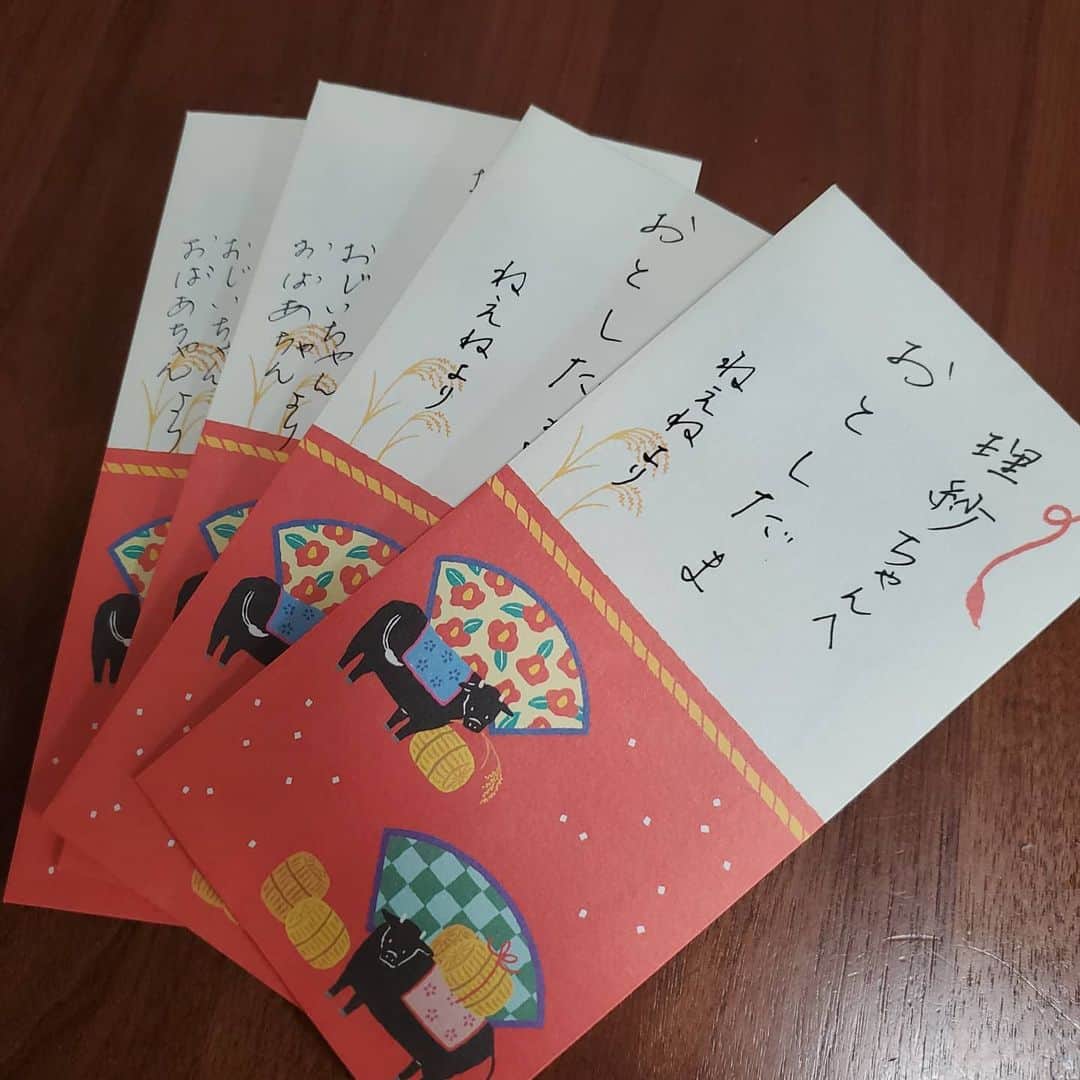 理紗ちゃんへ
おとしだま
ねえねより
おとしだ
ねえねより
おじいちゃん
おばあちゃんより
おじいちゃん
おばあちゃんより